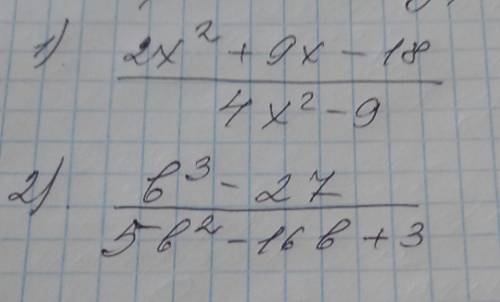 1) (2x² + 9x - 18) / (4x² - 9)
2). (b³ - 27) / (5b² - 16b + 3)